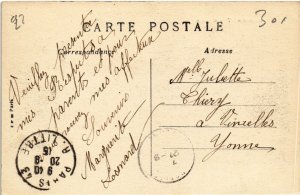 CARTE POSTALE
301
Correspondance
Adresse
Veuillez présenter
mes Respects à
vos parents et pour
vous mes affectueux
Souvenirs
Marguerite
Leonard
Melle Juliette
Thiery
à Vincelles
Yonne
PARIS
9 40
20 -9